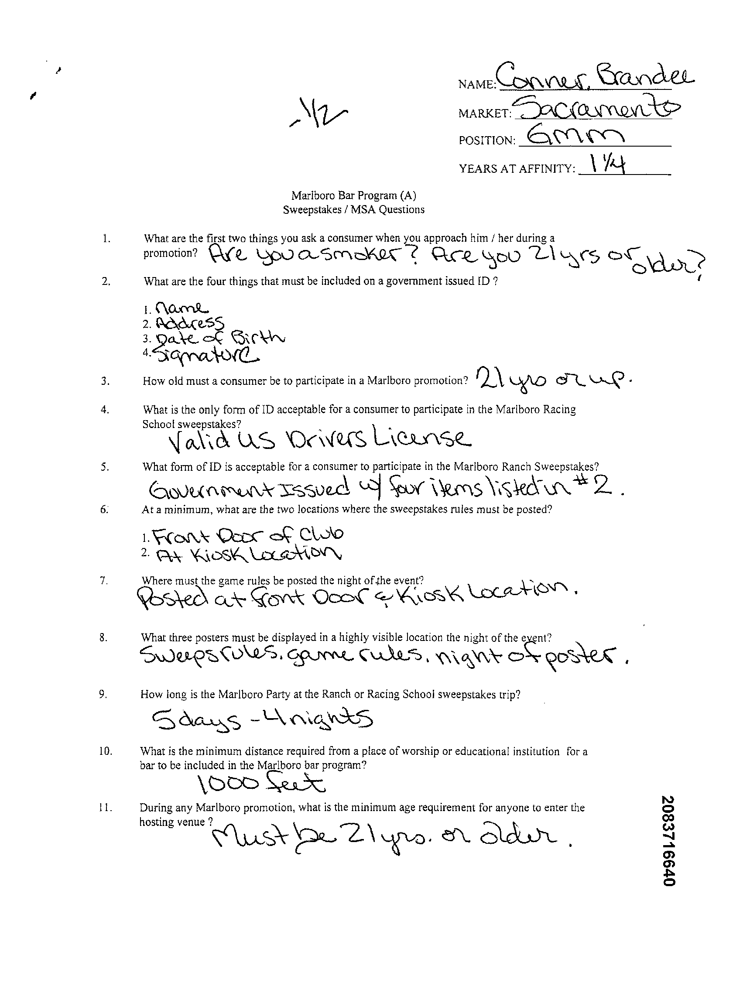 NAME: Conner, Brandee
MARKET: Sacramento
POSITION: GMM
YEARS AT AFFINITY: 1 1/4
-1/2
Marlboro Bar Program (A)
Sweepstakes / MSA Questions
1. What are the first two things you ask a consumer when you approach him / her during a
promotion? Are you a smoker? Are you 21 yrs or older?
2. What are the four things that must be included on a government issued ID ?
1. Name
2. Address
3. Date of Birth
4. Signature
3. How old must a consumer be to participate in a Marlboro promotion? 21 yrs or up.
4. What is the only form of ID acceptable for a consumer to participate in the Marlboro Racing
School sweepstakes?
Valid US Drivers License
5. What form of ID is acceptable for a consumer to participate in the Marlboro Ranch Sweepstakes?
Government Issued w/ four items listed in #2.
6. At a minimum, what are the two locations where the sweepstakes rules must be posted?
1. Front Door of Club
2. At Kiosk Location
7. Where must the game rules be posted the night of the event?
Posted at front Door & Kiosk Location.
8. What three posters must be displayed in a highly visible location the night of the event?
Sweeps rules, game rules, night of poster.
9. How long is the Marlboro Party at the Ranch or Racing School sweepstakes trip?
5 days - 4 nights
10. What is the minimum distance required from a place of worship or educational institution for a
bar to be included in the Marlboro bar program?
1000 feet
11. During any Marlboro promotion, what is the minimum age requirement for anyone to enter the
hosting venue ?
Must be 21 yrs. or older.
2083716640